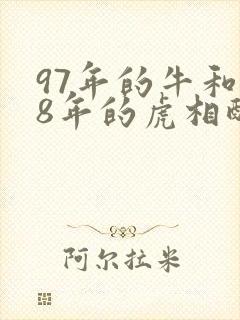 97年的牛和
8年的虎相
阿尔拉米